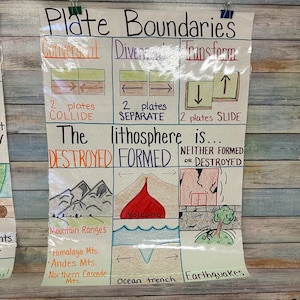 Plate Boundaries
Convergent Divergent Transform
2 plates COLLIDE
2 plates SEPARATE
2 plates SLIDE
The lithosphere is...
DESTROYED FORMED NEITHER FORMED or DESTROYED
Mountain Ranges
Himalaya Mts.
Andes Mts.
Northern Cascade Mts.
Volcano
Ocean trench
Earthquakes